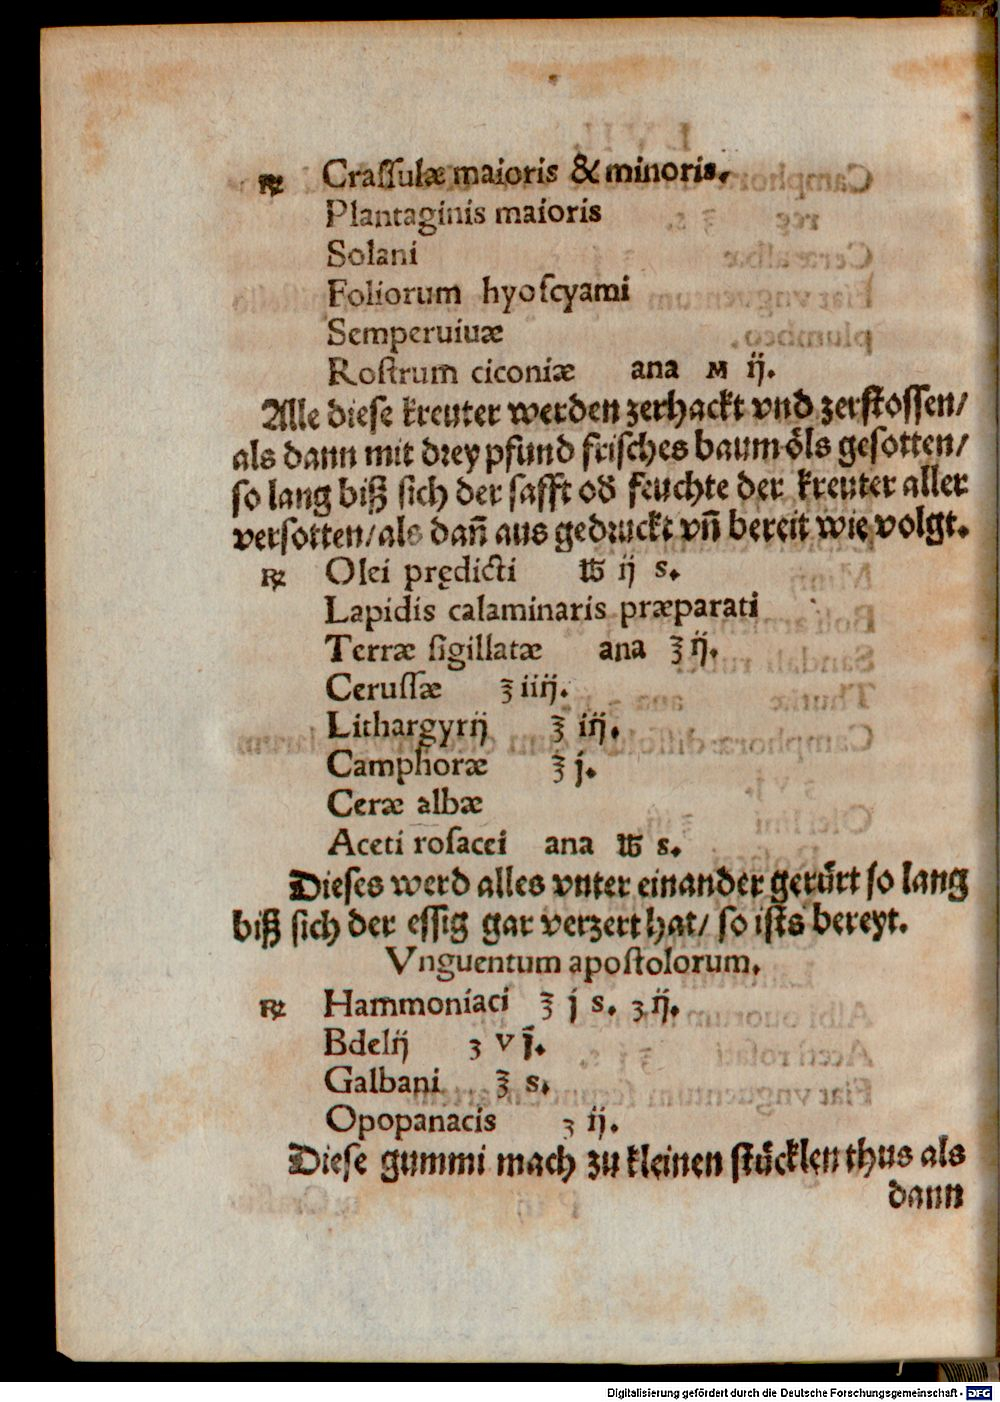 ℞ Craſſulæ maioris & minoris.
Plantaginis maioris
Solani
Foliorum hyoſcyami
Semperuiuæ
Roſtrum ciconiæ ana M ij.
Alle dieſe kreuter werden zerhackt vnd zerſtoſſen/
als dann mit drey pfund friſches baum öls geſotten/
ſo lang biß ſich der ſafft od feuchte der kreuter aller
verſotten/als dañ aus gedruckt vñ bereit wie volgt.
℞ Olei prędicti ℔ ij s.
Lapidis calaminaris præparati
Terræ ſigillatæ ana ℥ ij.
Ceruſſæ ℥ iiij.
Lithargyrij ℥ iij.
Camphoræ ℥ j.
Ceræ albæ
Aceti roſacei ana ℔ s.
Dieſes werd alles vnter einander gerürt ſo lang
biß ſich der eſſig gar verzert hat/ ſo iſts bereyt.
Vnguentum apoſtolorum.
℞ Hammoniaci ℥ j s. ʒ ij.
Bdelij ʒ v j.
Galbani ℥ s.
Opopanacis ʒ ij.
Dieſe gummi mach zu kleinen ſtücklen thus als
dann
Digitalisierung gefördert durch die Deutsche Forschungsgemeinschaft - DFG